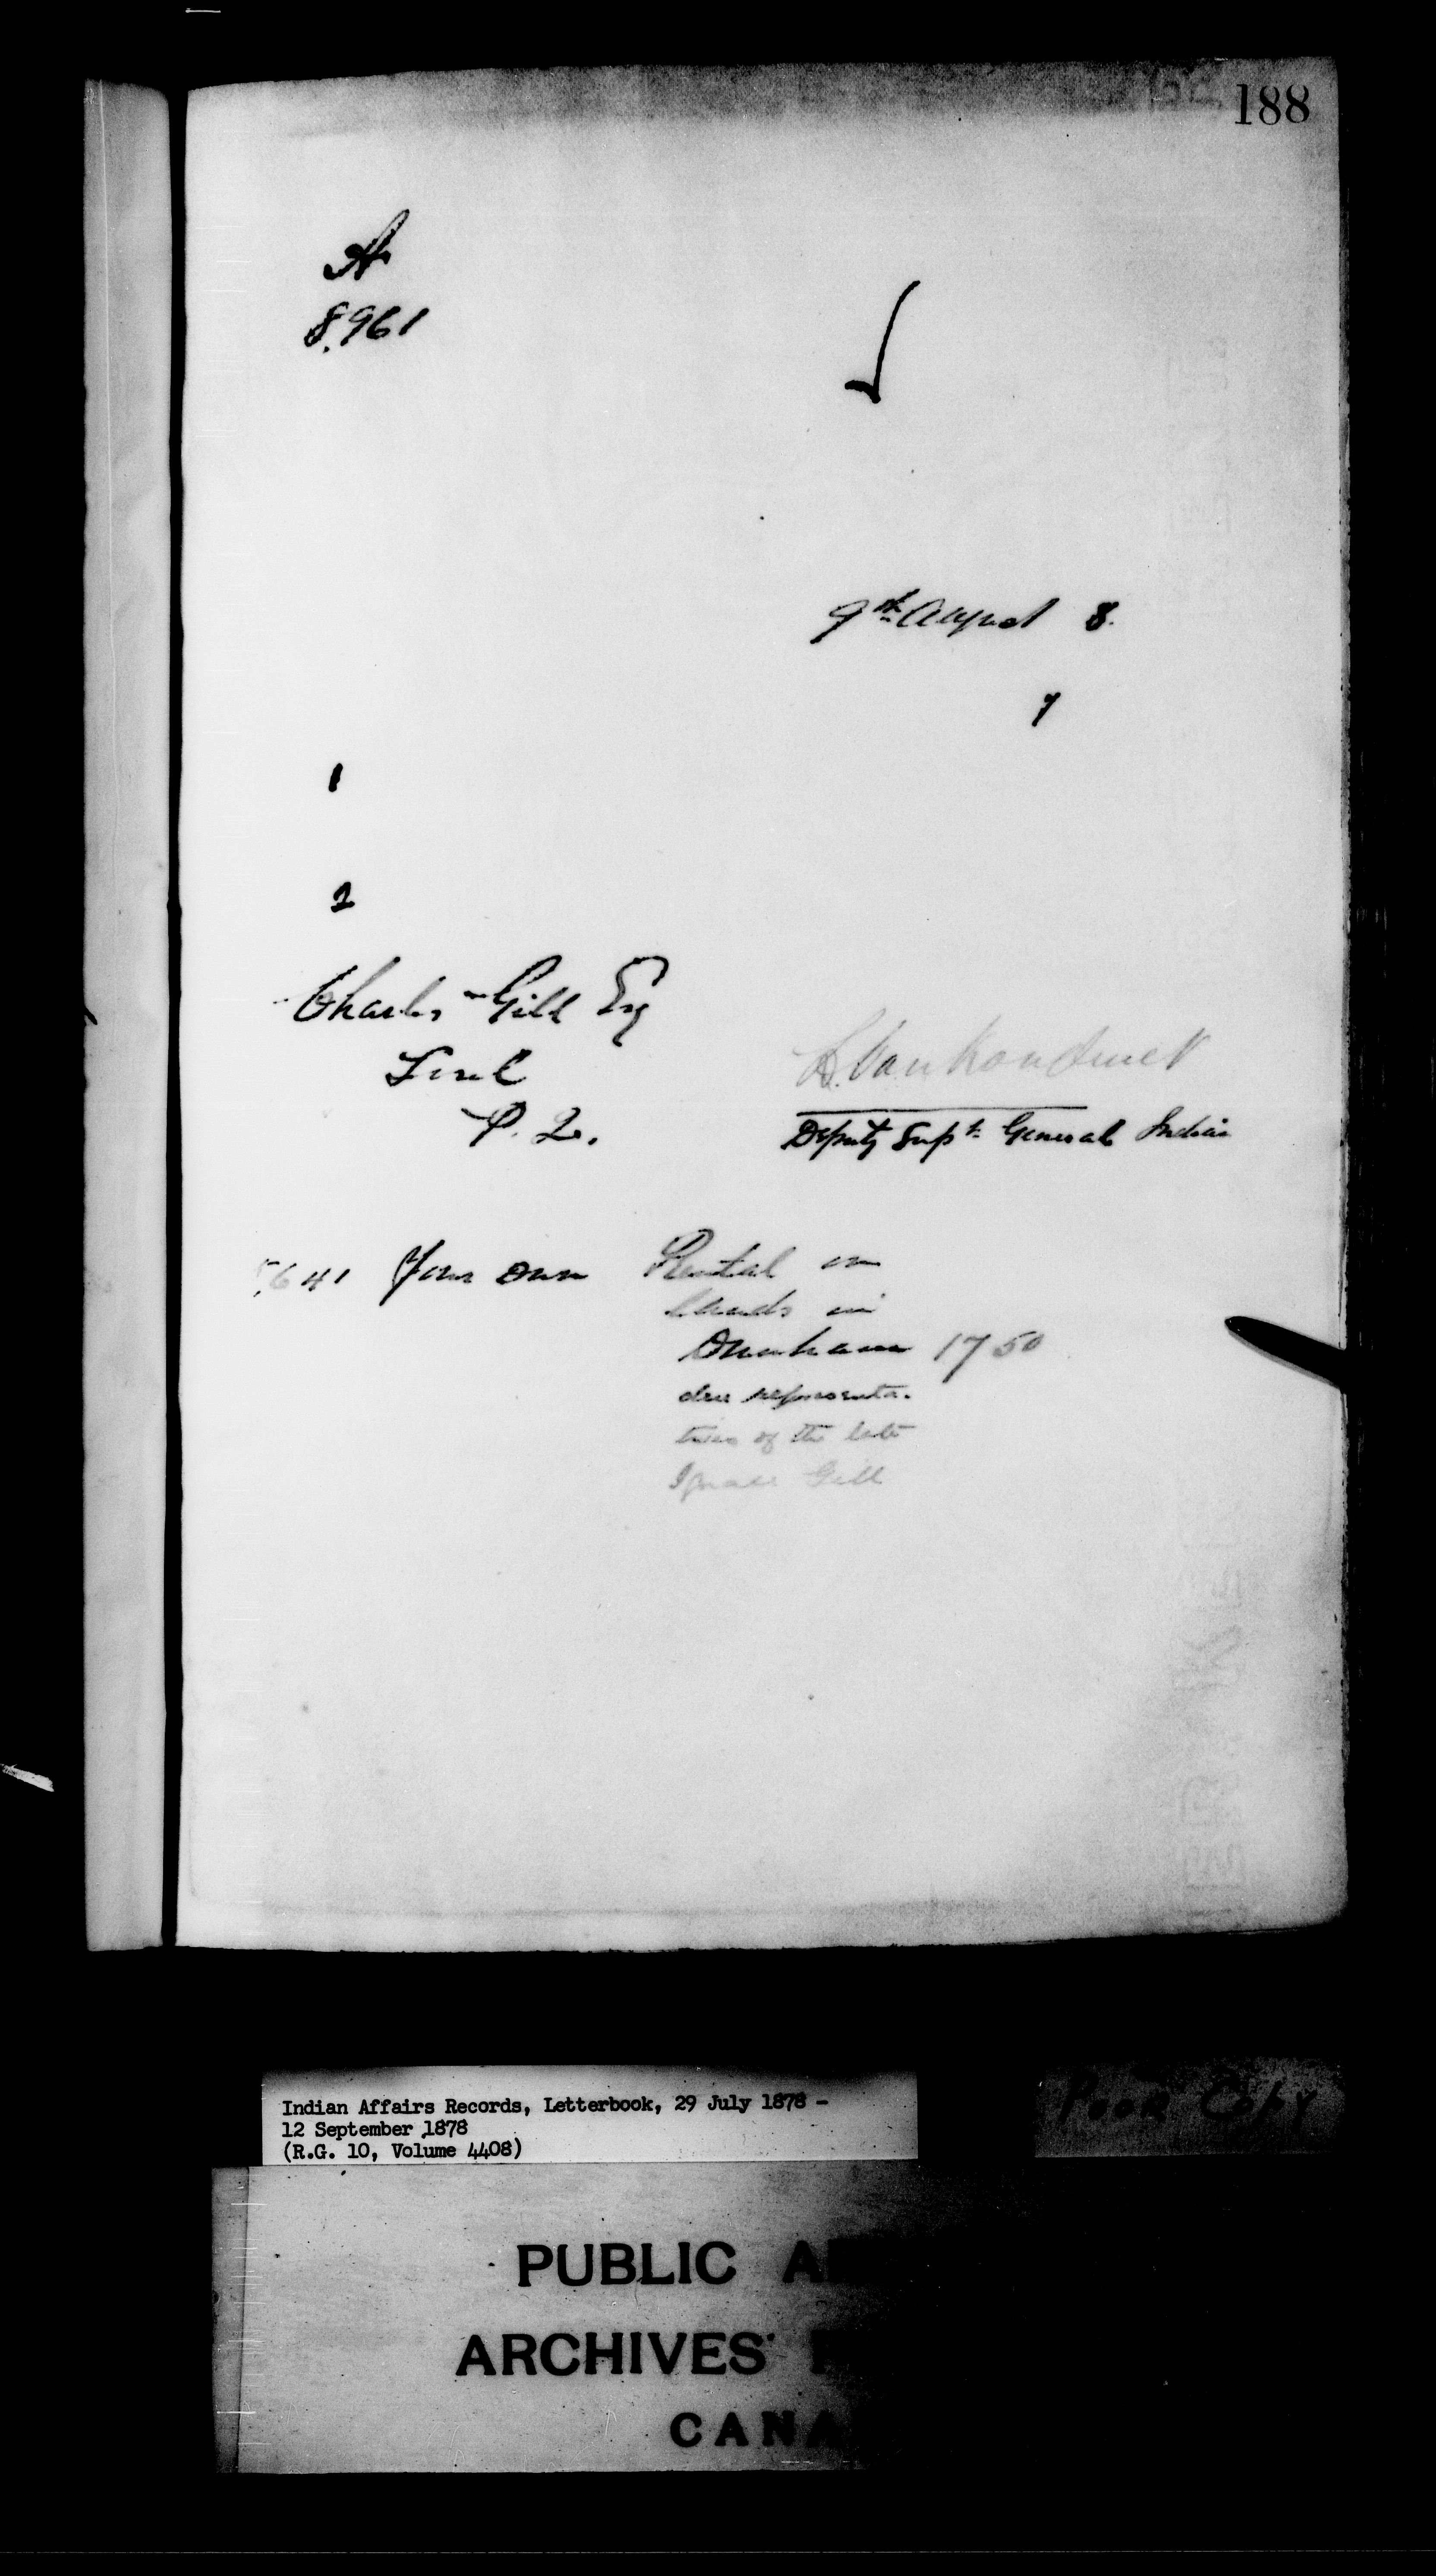 188
A
8.961
9th August 8.
7
1
2
Charles Gill Esq
Sorel
P. Q.
L. Vankoughnet
Deputy Supt. General Indian
641 Your own Rental on
lands in
Durham 17 50
due representa-
tives of the late
Ignace Gill
Indian Affairs Records, Letterbook, 29 July 1878 -
12 September 1878
(R.G. 10, Volume 4408)
Poor Copy
PUBLIC A
ARCHIVES
CANA